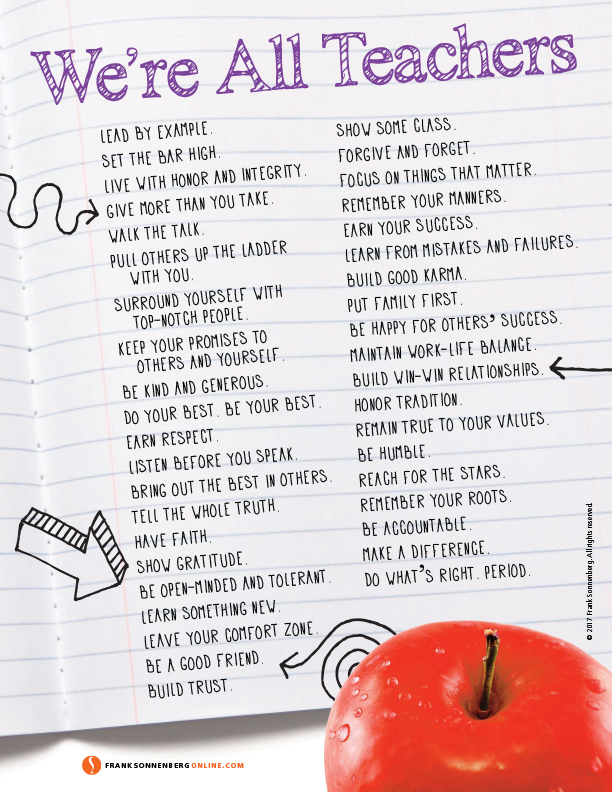 We're All Teachers
LEAD BY EXAMPLE.
SET THE BAR HIGH.
LIVE WITH HONOR AND INTEGRITY.
GIVE MORE THAN YOU TAKE.
WALK THE TALK.
PULL OTHERS UP THE LADDER
WITH YOU.
SURROUND YOURSELF WITH
TOP-NOTCH PEOPLE.
KEEP YOUR PROMISES TO
OTHERS AND YOURSELF.
BE KIND AND GENEROUS.
DO YOUR BEST. BE YOUR BEST.
EARN RESPECT.
LISTEN BEFORE YOU SPEAK.
BRING OUT THE BEST IN OTHERS.
TELL THE WHOLE TRUTH.
HAVE FAITH.
SHOW GRATITUDE.
BE OPEN-MINDED AND TOLERANT.
LEARN SOMETHING NEW.
LEAVE YOUR COMFORT ZONE.
BE A GOOD FRIEND.
BUILD TRUST.
SHOW SOME CLASS.
FORGIVE AND FORGET.
FOCUS ON THINGS THAT MATTER.
REMEMBER YOUR MANNERS.
EARN YOUR SUCCESS.
LEARN FROM MISTAKES AND FAILURES.
BUILD GOOD KARMA.
PUT FAMILY FIRST.
BE HAPPY FOR OTHERS' SUCCESS.
MAINTAIN WORK-LIFE BALANCE.
BUILD WIN-WIN RELATIONSHIPS.
HONOR TRADITION.
REMAIN TRUE TO YOUR VALUES.
BE HUMBLE.
REACH FOR THE STARS.
REMEMBER YOUR ROOTS.
BE ACCOUNTABLE.
MAKE A DIFFERENCE.
DO WHAT'S RIGHT. PERIOD.
© 2017 Frank Sonnenberg. All rights reserved.
FRANKSONNENBERGONLINE.COM